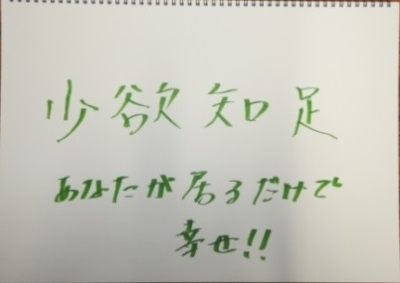 少欲知足
あなたが居るだけで
幸せ!!